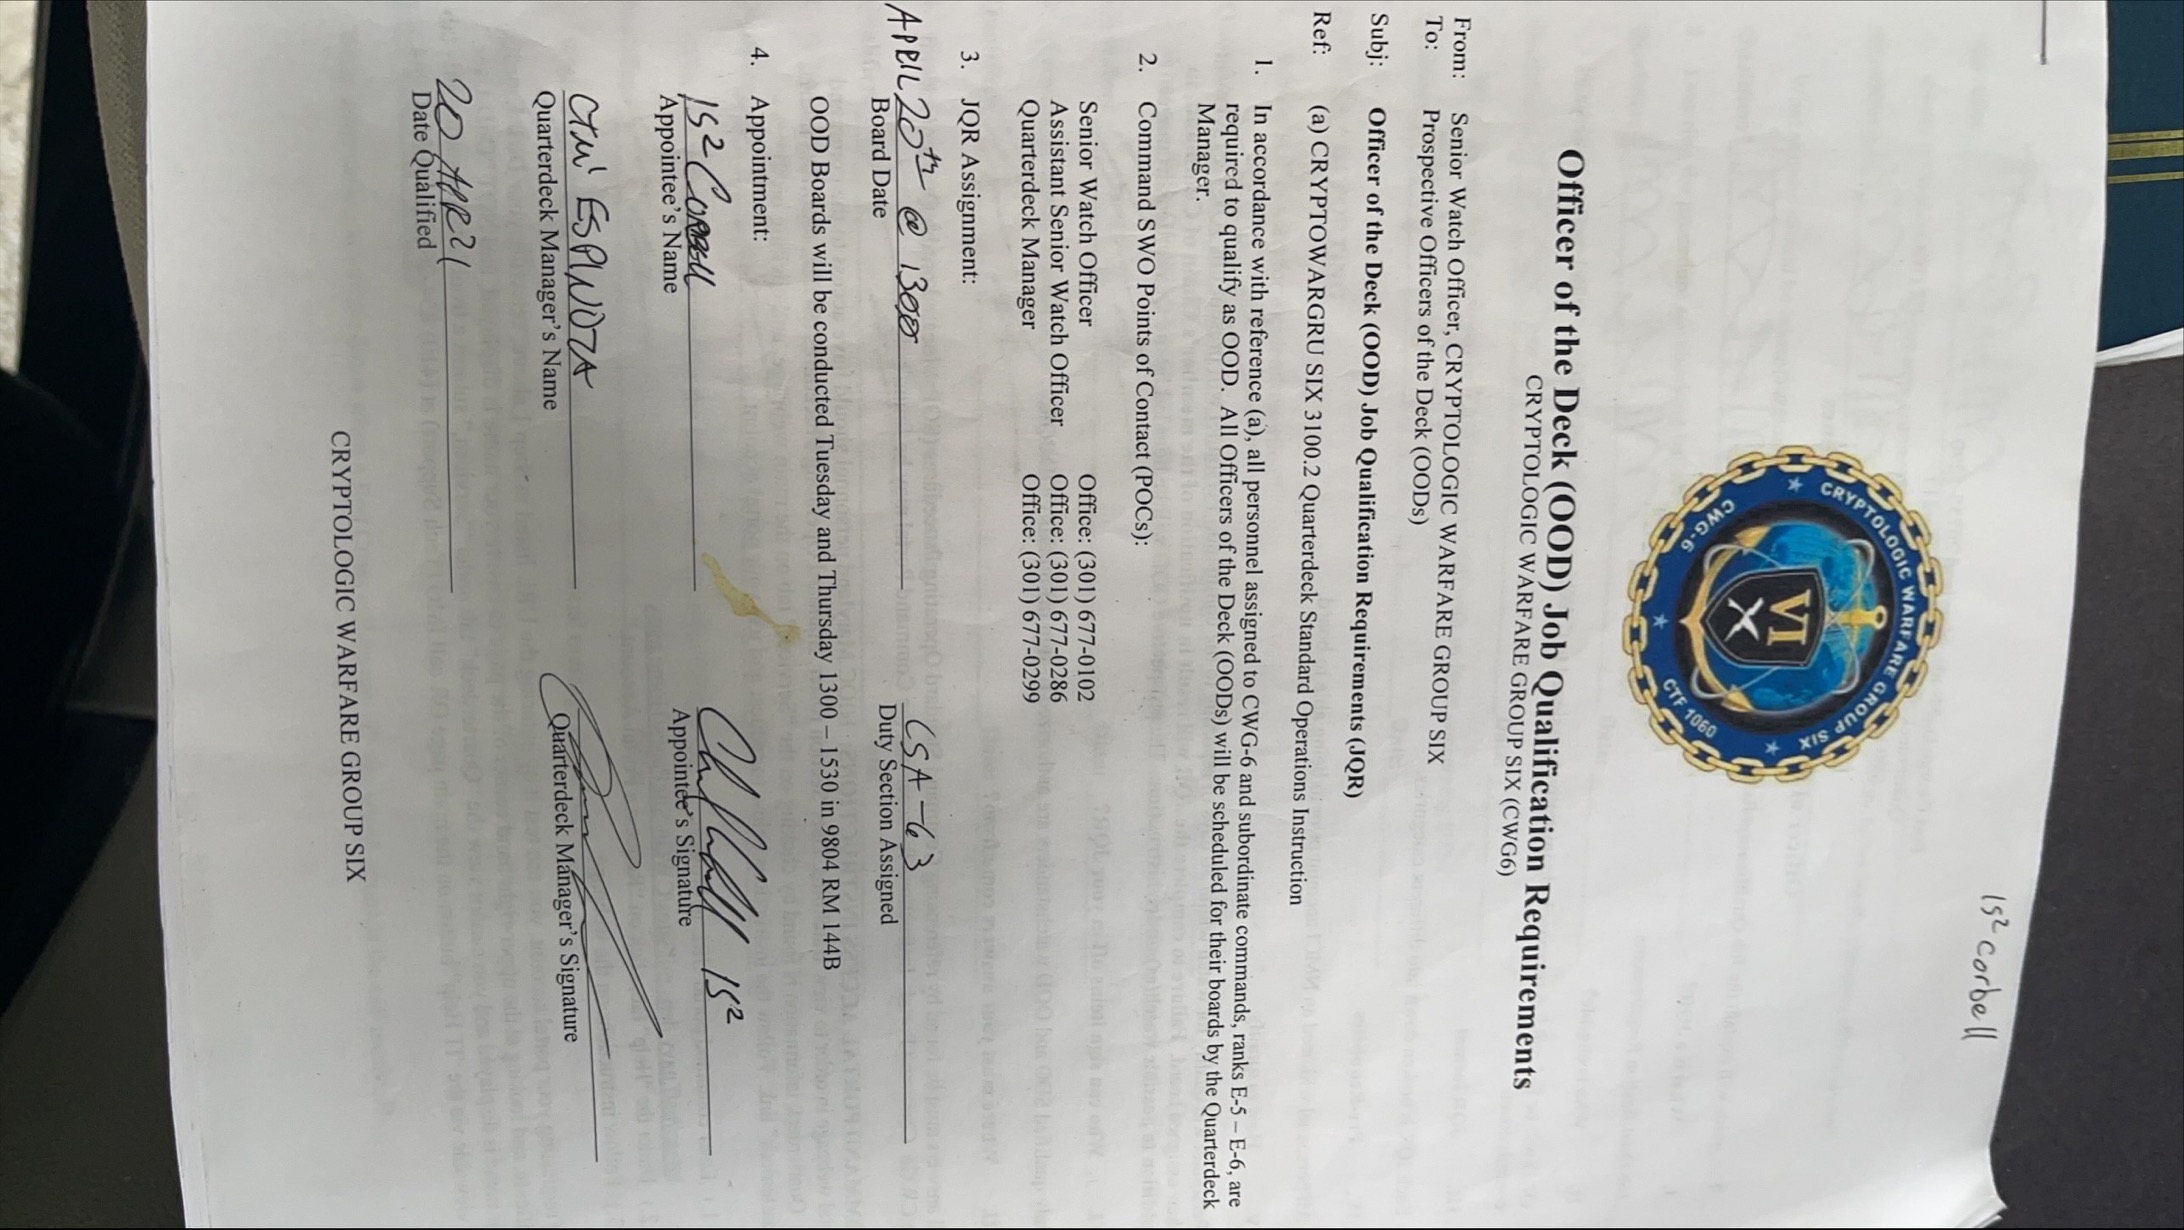 IS2 Corbell
CRYPTOLOGIC WARFARE GROUP SIX
VI
CWG-6
CTF 1060
Officer of the Deck (OOD) Job Qualification Requirements
CRYPTOLOGIC WARFARE GROUP SIX (CWG6)
From: Senior Watch Officer, CRYPTOLOGIC WARFARE GROUP SIX
To: Prospective Officers of the Deck (OODs)
Subj: Officer of the Deck (OOD) Job Qualification Requirements (JQR)
Ref: (a) CRYPTOWARGRU SIX 3100.2 Quarterdeck Standard Operations Instruction
1. In accordance with reference (a), all personnel assigned to CWG-6 and subordinate commands, ranks E-5 – E-6, are
required to qualify as OOD. All Officers of the Deck (OODs) will be scheduled for their boards by the Quarterdeck
Manager.
2. Command SWO Points of Contact (POCs):
Senior Watch Officer Office: (301) 677-0102
Assistant Senior Watch Officer Office: (301) 677-0286
Quarterdeck Manager Office: (301) 677-0299
3. JQR Assignment:
APRIL 20th @ 1300 CSA-63
Board Date Duty Section Assigned
OOD Boards will be conducted Tuesday and Thursday 1300 – 1530 in 9804 RM 144B
4. Appointment:
IS2 CORBELL IS2
Appointee's Name Appointee's Signature
CTM1 ESPINOZA
Quarterdeck Manager's Name Quarterdeck Manager's Signature
20 APR 21
Date Qualified
CRYPTOLOGIC WARFARE GROUP SIX